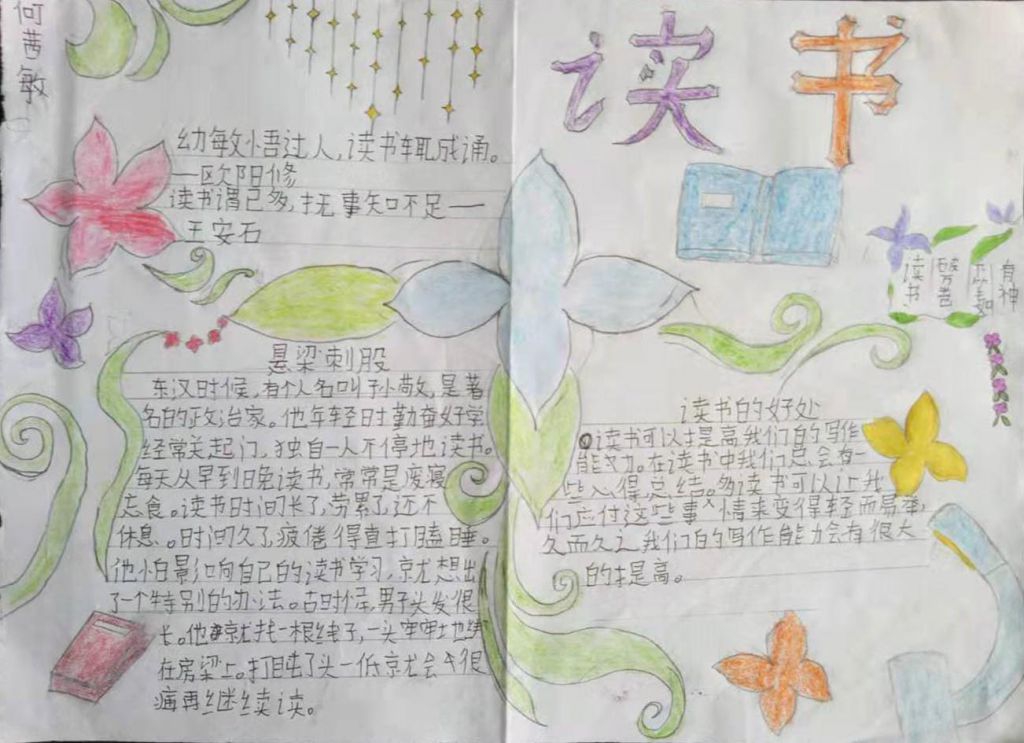 何茜敏
幼敏悟过人,读书辄成诵。
—欧阳修
读书谓已多,抚事知不足——
王安石
悬梁刺股
东汉时候,有个人名叫孙敬,是著
名的政治家。他年轻时勤奋好学
经常关起门,独自一人不停地读书。
每天从早到晚读书,常常是废寝
忘食。读书时间长了,劳累了,还不
休息。时间久了,疲倦得直打瞌睡。
他怕影响自己的读书学习,就想出
了一个特别的办法。古时候,男子头发很
长。他就找一根绳子,一头牢牢地绑
在房梁上。打盹了头一低就会
痛再继续读。
读书
读书
破万卷
下笔如
有神
读书的好处
读书可以提高我们的写作
能力。在读书中我们总会有一
些心得总结。多读书可以让我
们应付这些事情来变得轻而易举,
久而久之,我们的写作能力会有很大
的提高。